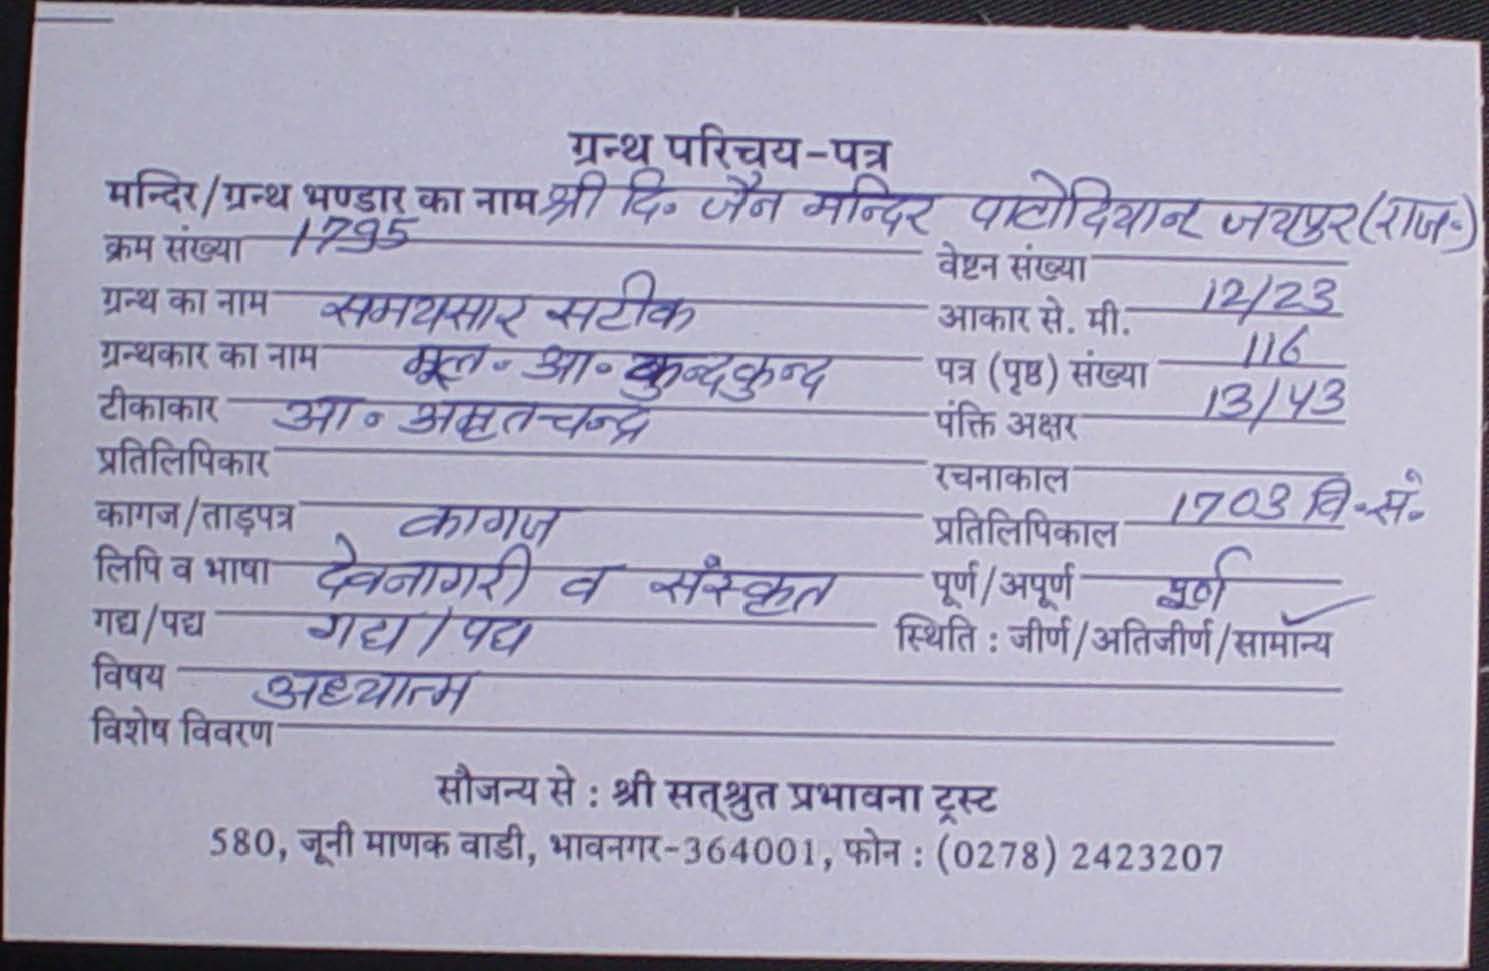 ग्रन्थ परिचय-पत्र
मन्दिर/ग्रन्थ भण्डार का नाम श्री दि. जैन मन्दिर पाटोदियान जयपुर (राज.)
क्रम संख्या 1795 वेष्टन संख्या
ग्रन्थ का नाम समयसार सटीक आकार से. मी. 12/23
ग्रन्थकार का नाम मूल. आ. कुन्दकुन्द पत्र (पृष्ठ) संख्या 116
टीकाकार आ. अमृतचन्द्र पंक्ति अक्षर 13/43
प्रतिलिपिकार रचनाकाल
कागज/ताड़पत्र कागज प्रतिलिपिकाल 1703 वि.सं.
लिपि व भाषा देवनागरी व संस्कृत पूर्ण/अपूर्ण पूर्ण
गद्य/पद्य गद्य/पद्य स्थिति : जीर्ण/अतिजीर्ण/सामान्य ✓
विषय अध्यात्म
विशेष विवरण
सौजन्य से : श्री सत्श्रुत प्रभावना ट्रस्ट
580, जूनी माणक वाडी, भावनगर-364001, फोन : (0278) 2423207